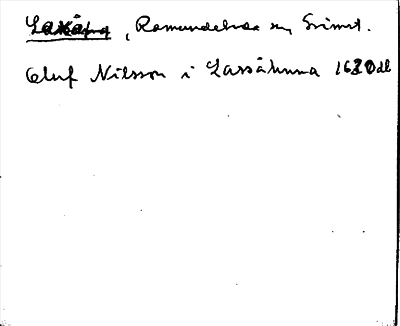 Laxåsna, Ramundeboda sn, Grimst.
Oluf Nilsson i Laxsåhuna 1630 dl